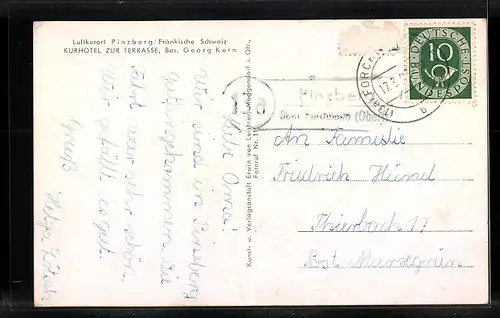 Luftkurort Pinzberg/Fränkische Schweiz
KURHOTEL ZUR TERRASSE, Bes. Georg Kern
Liebe Oma!
Wir sind in Pinzberg
gut angekommen. Die
Fahrt war sehr schön.
Wir gefällt es gut.
Gruß
Helga
Kunst- u. Verlagsanstalt Erwin von Leistner, Waggendorf i. Ofr.,
Fernruf Nr. 11
13a
Pinzberg
über Forchheim (Oberfr)
(13a) FORCHHEIM
17.3.
b
DEUTSCHE
BUNDESPOST
10
An Familie
Friedrich Hümel
Thierbach 17
Post Marxgrün